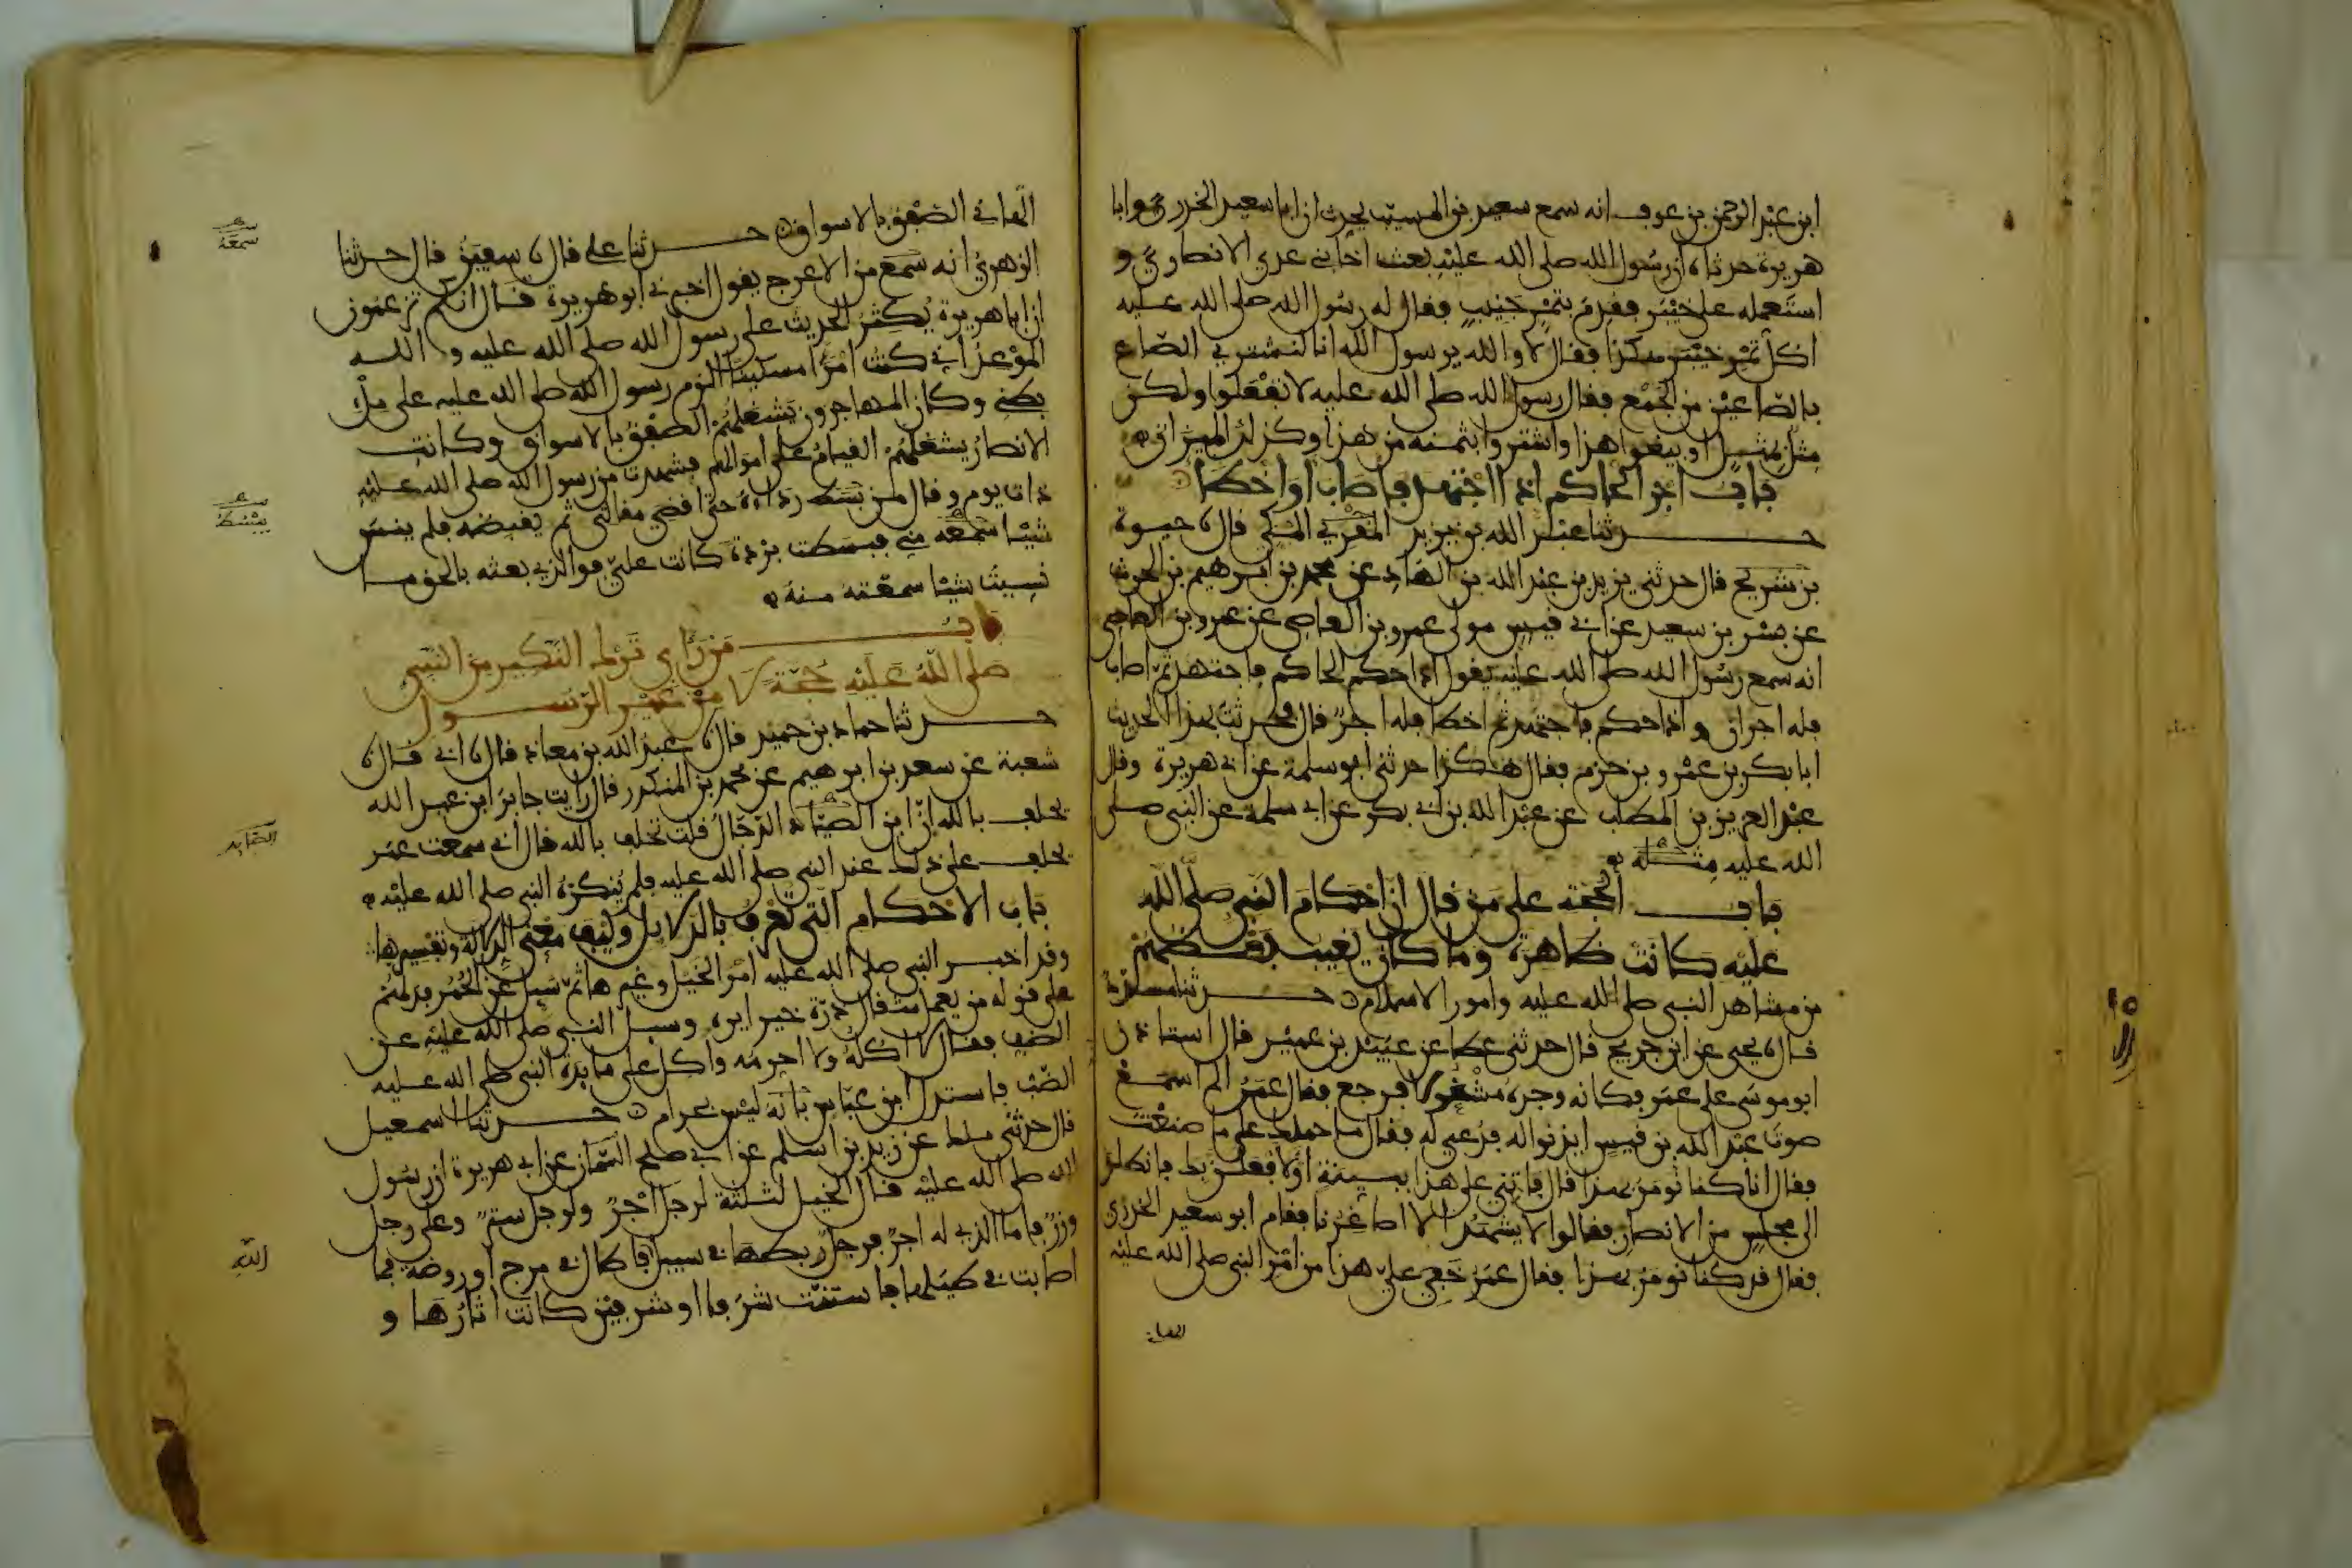 ابن عبد الرحمن بن عوف انه سمع سعيد بن المسيب يحدث ان ابا سعيد الخدري وابا
هريرة حدثاه ان رسول الله صلى الله عليه بعث اخا بني عدي الانصاري و
استعمله على خيبر فقدم بتمر جنيب فقال له رسول الله صلى الله عليه
اكل تمر خيبر هكذا فقال لا والله يرسول الله انا لنشتري الصاع
بالصاعين من الجمع فقال رسول الله صلى الله عليه لا تفعلوا ولكن
مثل بمثل او بيعوا هذا واشتروا بثمنه من هذا وكذلك الميزان
باب اجر الحاكم اذا اجتهد فاصاب او اخطا
حدثنا عبد الله بن يزيد المقري المكي قال نا حيوة
بن شريح قال حدثني يزيد بن عبد الله بن الهاد عن محمد بن ابرهيم بن الحرث
عن بسر بن سعيد عن ابي قيس مولى عمرو بن العاصي عن عمرو بن العاصي
انه سمع رسول الله صلى الله عليه يقول اذا حكم الحاكم فاجتهد ثم اصاب
فله اجران و اذا حكم فاجتهد ثم اخطا فله اجر قال فحدثت بهذا الحديث
ابا بكر بن عمرو بن حزم فقال هكذا حدثني ابو سلمة عن ابي هريرة وقال
عبد العزيز بن المطلب عن عبد الله بن ابي بكر عن ابي سلمة عن النبي صلى
الله عليه مثله
باب الحجة على من قال ان احكام النبي صلى الله
عليه كانت ظاهرة وما كان يغيب بعضهم
من مشاهد النبي صلى الله عليه وامور الاسلام حدثنا مسدد
قال نا يحيى عن ابن جريج قال حدثني عطا عن عبيد بن عمير قال استاذن
ابو موسى على عمر فكانه وجده مشغولا فرجع فقال عمر الم اسمع
صوت عبد الله بن قيس ايذنوا له فدعي له فقال ما حملك على ما صنعت
فقال انا كنا نومر بهذا قال فاتني على هذا ببينة او لافعلن بك فانطلق
الى مجلس من الانصار فقالوا لا يشهد الا اصاغرنا فقام ابو سعيد الخدري
فقال قد كنا نومر بهذا فقال عمر خفي علي هذا من امر النبي صلى الله عليه
الهاني
الهاني الصفق بالاسواق حدثنا علي قال نا سفين قال حدثنا
الزهري انه سمع من الاعرج يقول اخبرني ابو هريرة قال انكم تزعمون
ان ابا هريرة يكثر الحديث على رسول الله صلى الله عليه و الله
الموعد اني كنت امرا مسكينا الزم رسول الله صلى الله عليه على ملء
بطني وكان المهاجرون يشغلهم الصفق بالاسواق وكانت
الانصار يشغلهم القيام على اموالهم فشهدت من رسول الله صلى الله عليه
ذات يوم و قال من بسط رداءه حتى اقضي مقالتي ثم يقبضه فلم ينس
شيئا سمعه مني فبسطت بردة كانت علي فوالذي بعثه بالحق ما
نسيت شيئا سمعته منه
باب من راى ترك النكير من النبي
صلى الله عليه حجة لا من غير الرسول
حدثنا حماد بن حميد قال نا عبيد الله بن معاذ قال نا ابي قال نا
شعبة عن سعد بن ابرهيم عن محمد بن المنكدر قال رايت جابر ابن عبد الله
يحلف بالله ان ابن الصياد الدجال قلت تحلف بالله قال اني سمعت عمر
يحلف على ذلك عند النبي صلى الله عليه فلم ينكره النبي صلى الله عليه
باب الاحكام التي تعرف بالدلايل وكيف معنى الدلالة وتفسيرها
وقد اخبر النبي صلى الله عليه امر الخيل وغيرها ثم سيل عن الحمر فدلهم
على قوله من يعمل مثقال ذرة خيرا يره وسيل النبي صلى الله عليه عن
الضب فقال لا اكله ولا احرمه واكل على مايدة النبي صلى الله عليه
الضب فاستدل ابن عباس بانه ليس بحرام حدثنا اسمعيل
قال حدثني ملك عن زيد بن اسلم عن ابي صلح السمان عن ابي هريرة ان رسول
الله صلى الله عليه قال الخيل لثلثة لرجل اجر ولرجل ستر وعلى رجل
وزر فاما الذي له اجر فرجل ربطها في سبيل فاطال في مرج او روضة فما
اصابت في طيلها فاستنت شرفا او شرفين كانت اثارها و
سمعه
يبسط
الصايد
الله